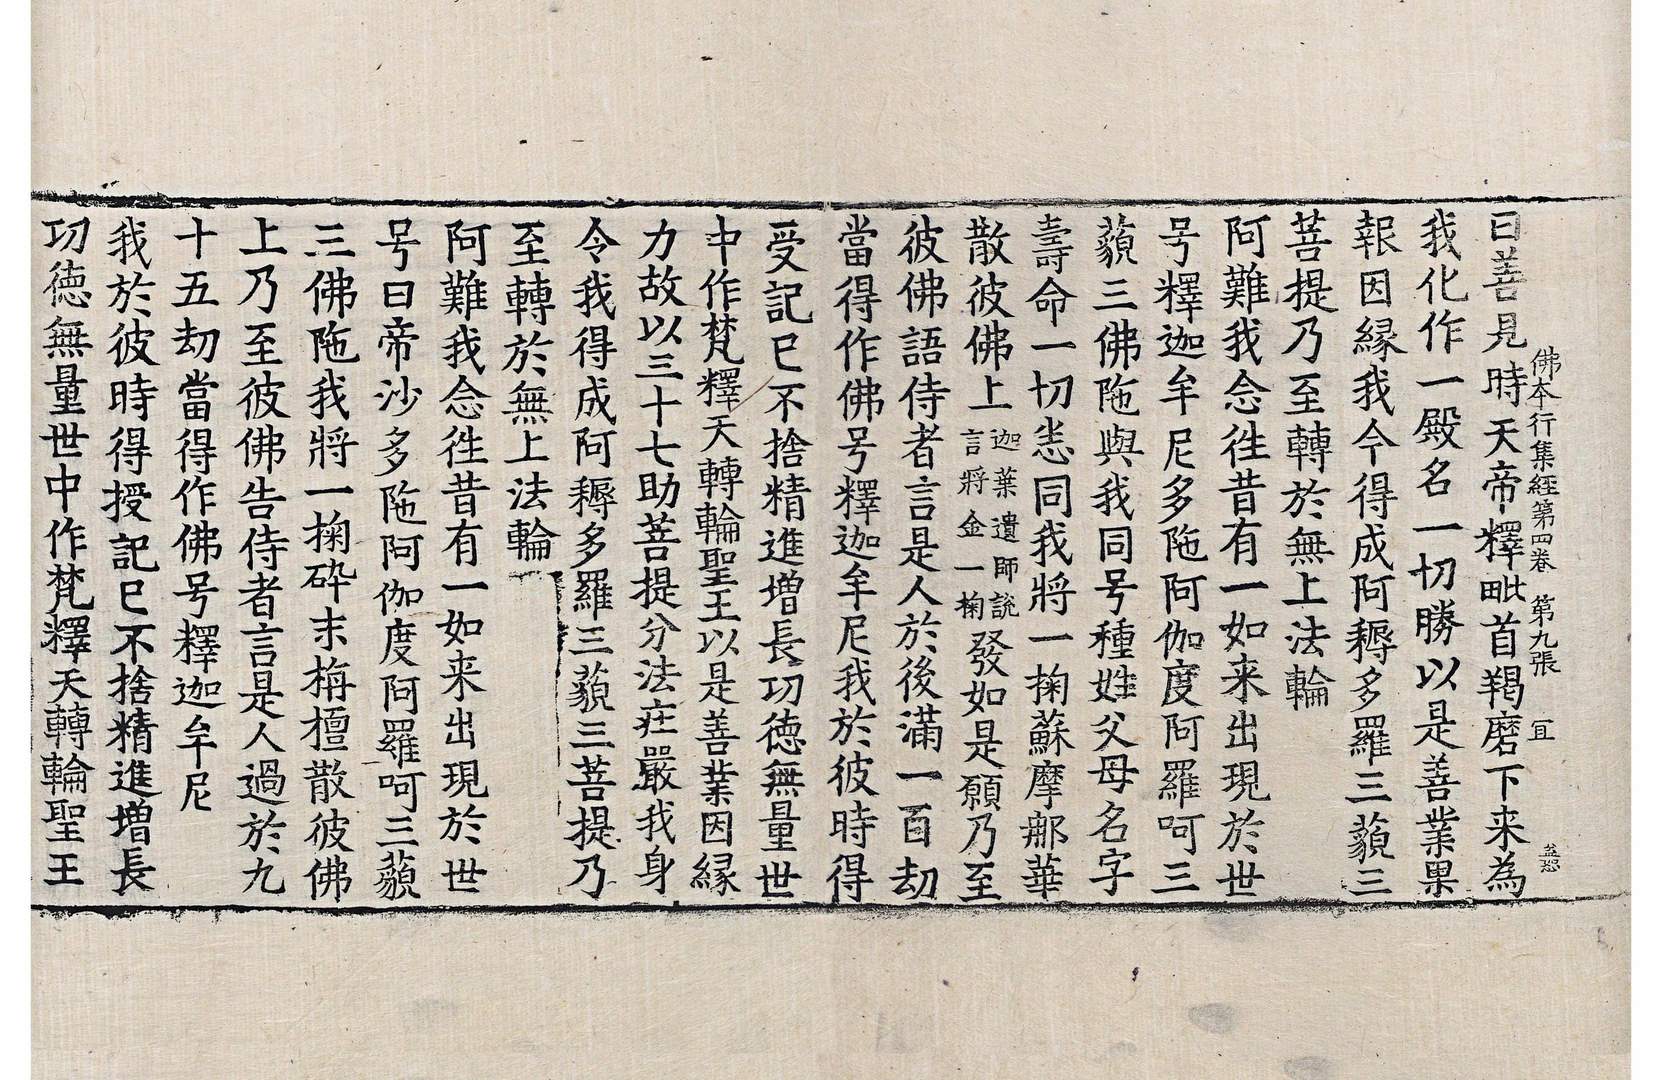 佛本行集經第四卷 第九張 宜
曰善見時天帝釋毗首羯磨下来為
我化作一殿名一切勝以是善業果
報因縁我今得成阿耨多羅三藐三
菩提乃至轉於無上法輪
阿難我念徃昔有一如来出現於世
号釋迦牟尼多陁阿伽度阿羅呵三
藐三佛陁與我同号種姓父母名字
壽命一切悉同我將一掬蘇摩那華
散彼佛上迦葉遺師說言將金一掬發如是願乃至
彼佛語侍者言是人於後滿一百劫
當得作佛号釋迦牟尼我於彼時得
受記已不捨精進增長功德無量世
中作梵釋天轉輪聖王以是善業因縁
力故以三十七助菩提分法莊嚴我身
令我得成阿耨多羅三藐三菩提乃
至轉於無上法輪
阿難我念徃昔有一如来出現於世
号曰帝沙多陁阿伽度阿羅呵三藐
三佛陁我將一掬碎末栴檀散彼佛
上乃至彼佛告侍者言是人過於九
十五劫當得作佛号釋迦牟尼
我於彼時得授記已不捨精進增長
功德無量世中作梵釋天轉輪聖王